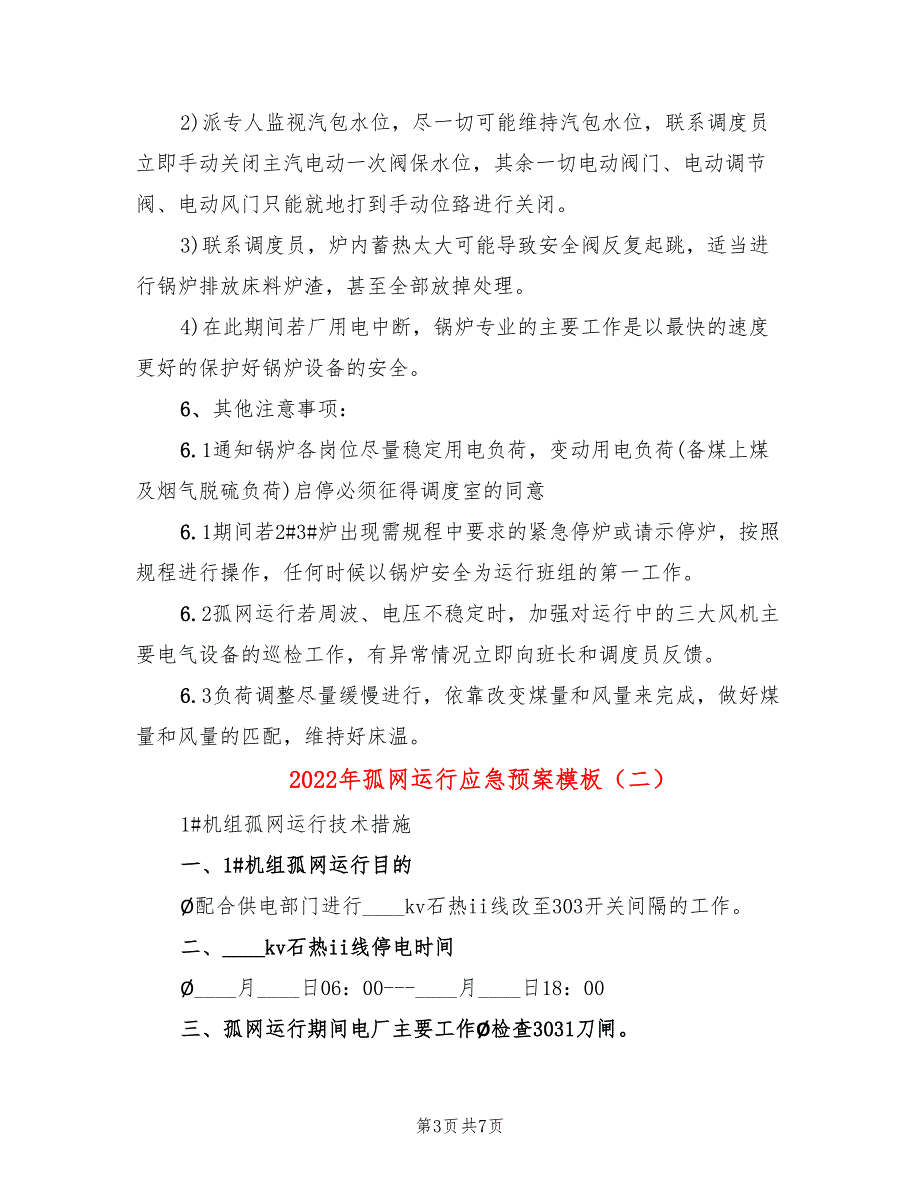 2)派专人监视汽包水位，尽一切可能维持汽包水位，联系调度员
立即手动关闭主汽电动一次阀保水位，其余一切电动阀门、电动调节
阀、电动风门只能就地打到手动位臵进行关闭。
3)联系调度员，炉内蓄热太大可能导致安全阀反复起跳，适当进
行锅炉排放床料炉渣，甚至全部放掉处理。
4)在此期间若厂用电中断，锅炉专业的主要工作是以最快的速度
更好的保护好锅炉设备的安全。
6、其他注意事项：
6.1通知锅炉各岗位尽量稳定用电负荷，变动用电负荷(备煤上煤
及烟气脱硫负荷)启停必须征得调度室的同意
6.1期间若2#3#炉出现需规程中要求的紧急停炉或请示停炉，按照
规程进行操作，任何时候以锅炉安全为运行班组的第一工作。
6.2孤网运行若周波、电压不稳定时，加强对运行中的三大风机主
要电气设备的巡检工作，有异常情况立即向班长和调度员反馈。
6.3负荷调整尽量缓慢进行，依靠改变煤量和风量来完成，做好煤
量和风量的匹配，维持好床温。
2022年孤网运行应急预案模板（二）
1#机组孤网运行技术措施
一、1#机组孤网运行目的
Ø配合供电部门进行____kv石热ii线改至303开关间隔的工作。
二、____kv石热ii线停电时间
Ø____月____日06：00---____月____日18：00
三、孤网运行期间电厂主要工作Ø检查3031刀闸。
第3页共7页